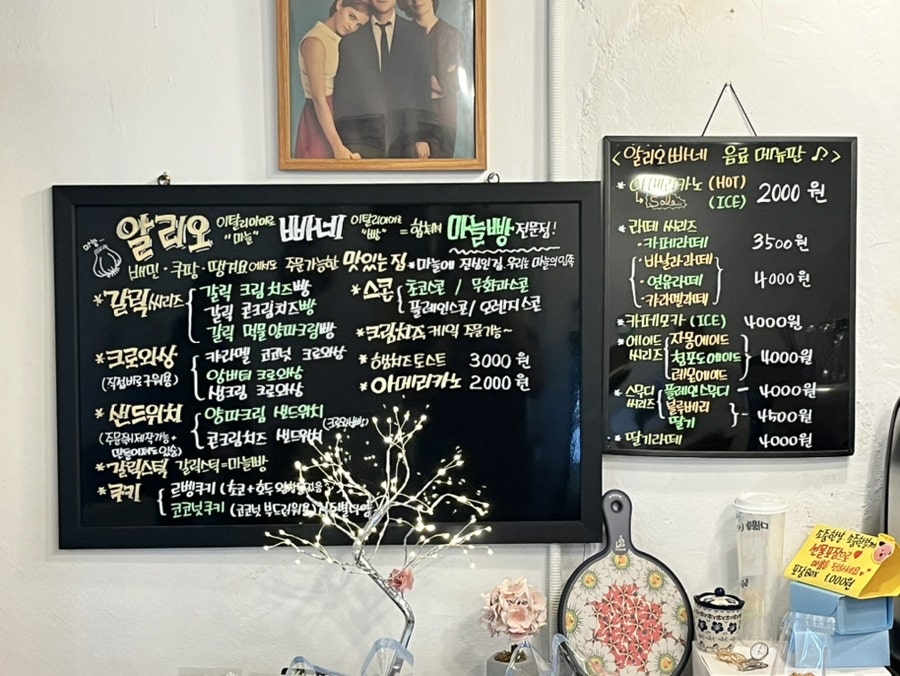 알리오 이탈리아어로 "마늘" 빠네 이탈리아어로 "빵" = 합쳐서 마늘빵 전문점!
배민 · 쿠팡 · 땡겨요에서도 주문가능한 맛있는 집 * 마늘에 진심인 집. 우리는 마늘의 민족
* 갈릭 씨리즈
갈릭 크림치즈빵
갈릭 콘크림치즈빵
갈릭 먹물양파크림빵
* 크로와상
(직접바로구워용)
카라멜 코코넛 크로와상
앙버터 크로와상
생크림 크로와상
* 샌드위치
(주문즉시제작가능+
양파크림 샌드위치
콘크림치즈 샌드위치
* 갈릭스틱 갈릭스틱=마늘빵
* 쿠키
르뱅쿠키 (초코+호두
코코넛쿠키 (코코넛
* 스콘
초코스콘 / 무화과스콘
플레인스콘 / 오렌지스콘
* 크림치즈 케익 주문가능~
* 햄치즈토스트 3000원
* 아메리카노 2000원
<알리오빠네 음료 메뉴판 ♪>
* 아메리카노 (HOT)
(ICE) 2000원
* 라떼 씨리즈
· 카페라떼 3500원
· 바닐라라떼
· 연유라떼 4000원
· 카라멜라떼
* 카페모카 (ICE) 4000원
* 에이드 씨리즈
자몽에이드
청포도에이드 4000원
레몬에이드
* 스무디 씨리즈
플레인스무디 - 4000원
블루베리
딸기 - 4500원
* 딸기라떼 4000원
선물포장으로
포장BOX 1,000원